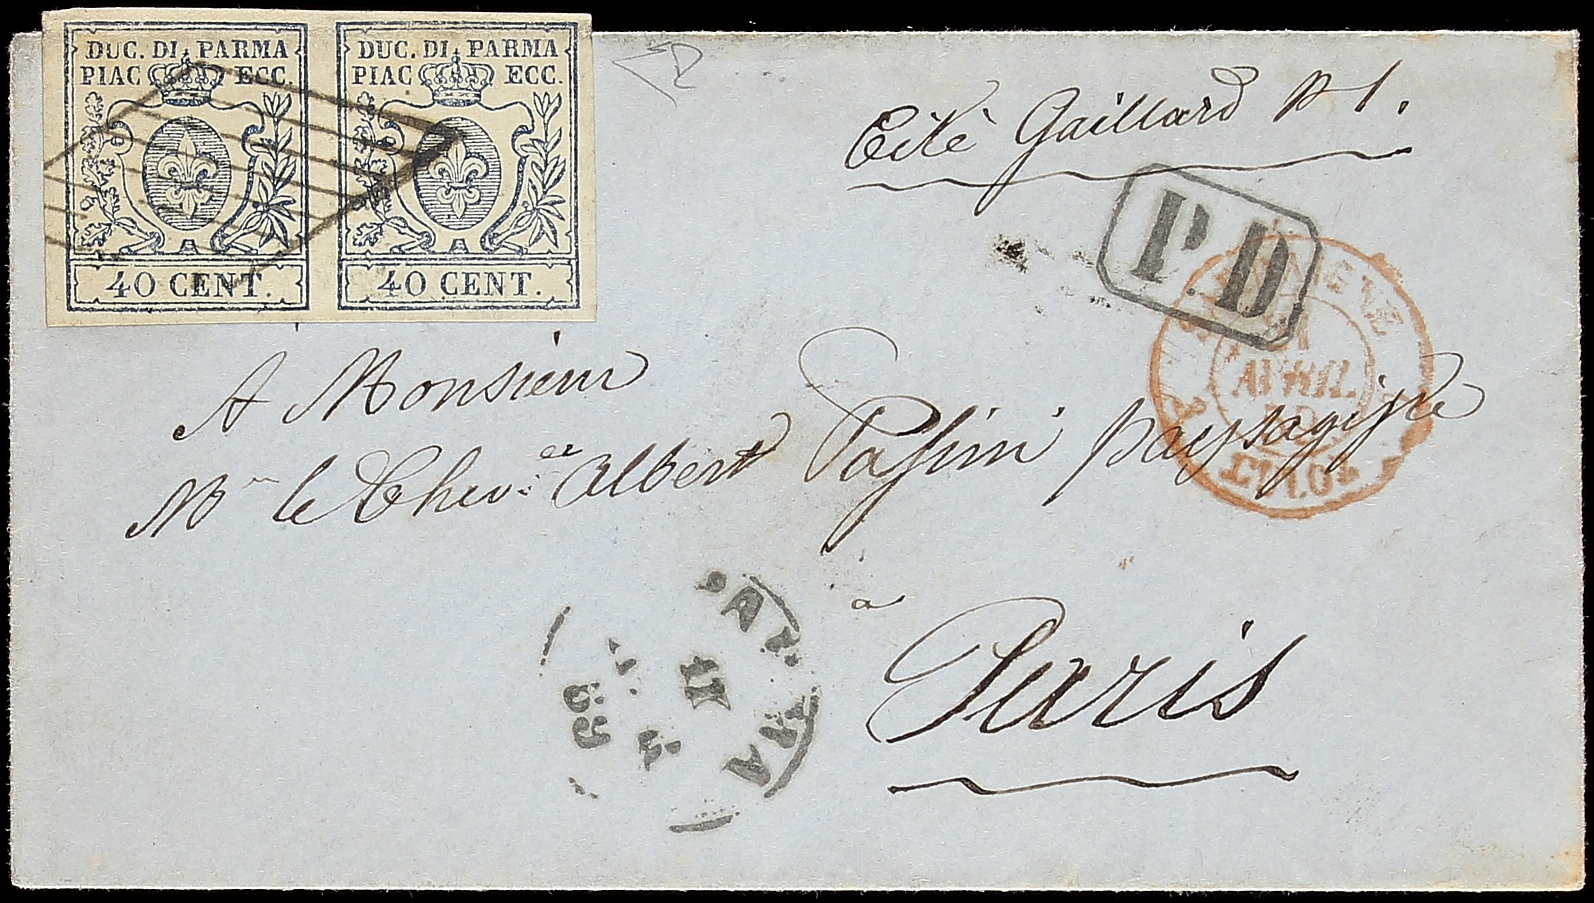 DUC. DI PARMA
PIAC ECC.
40 CENT.
DUC. DI PARMA
PIAC ECC.
40 CENT.
Cité Gaillard No 1.
P.D
AVRIL
A Monsieur
Mr le Chev.er Albert Passini paysagiste
a
Paris
PARMA
59